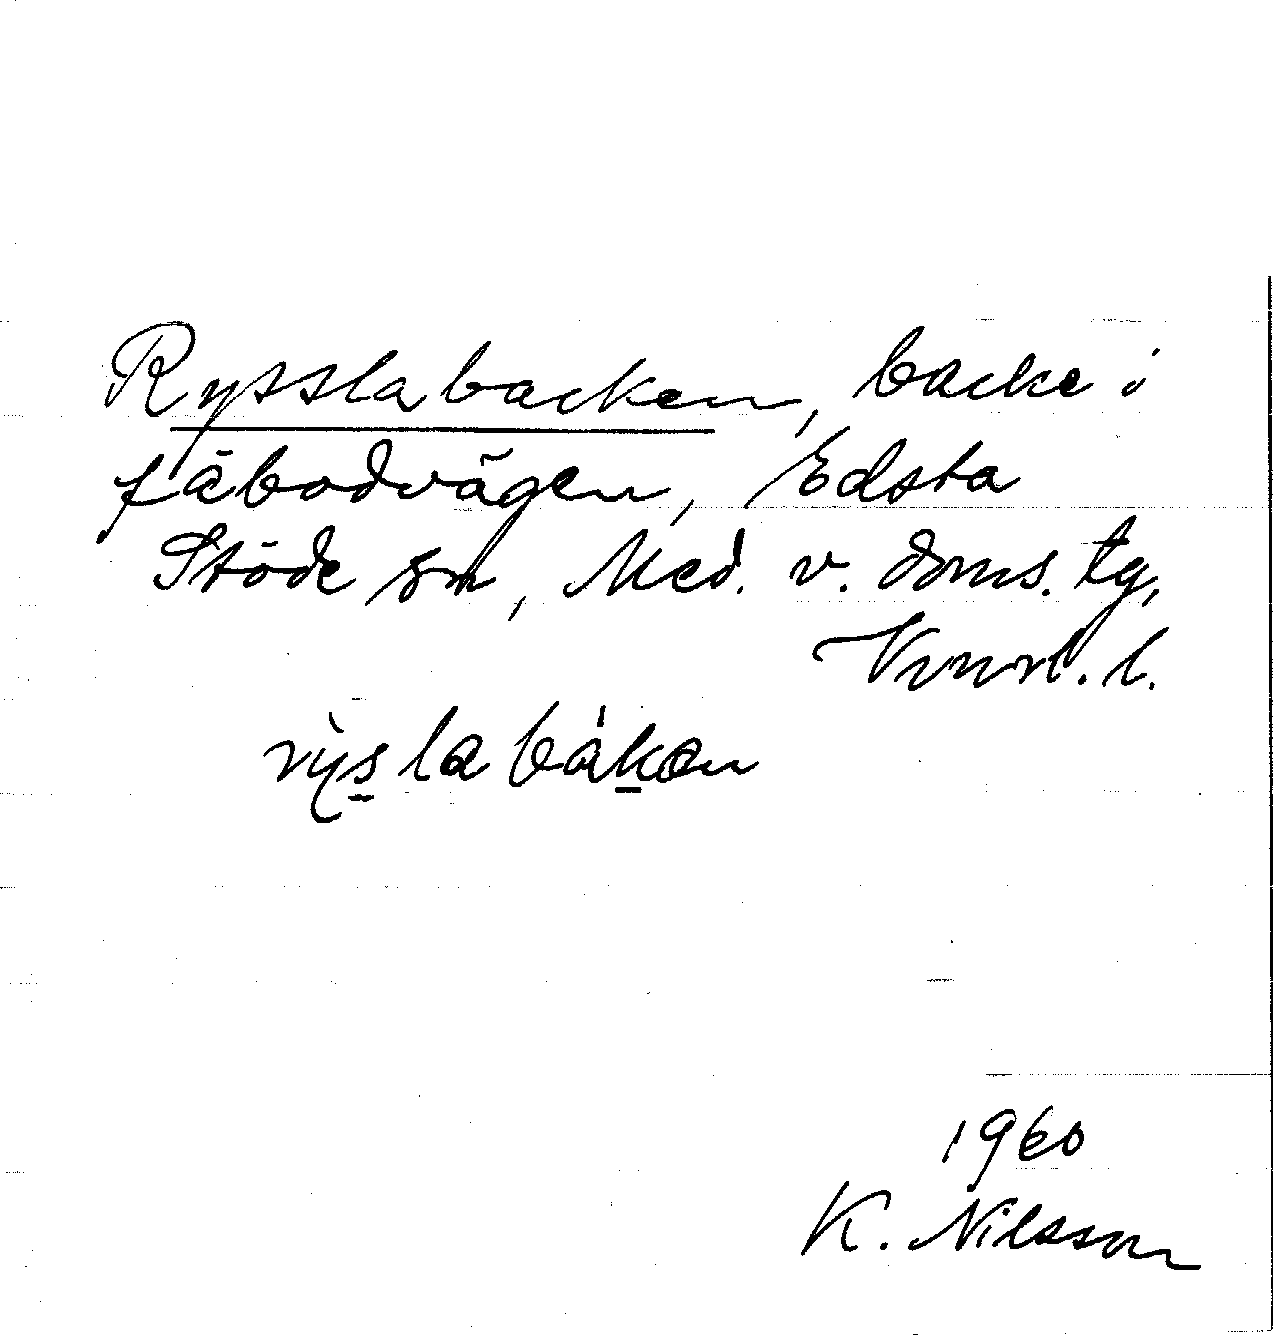 Rysslabacken, backe i
fäbodvägen, Edsta
Stöde sn, Med. v. doms. tg,
Vnorl. l.
rỳslabákən
1960
K. Nilsson